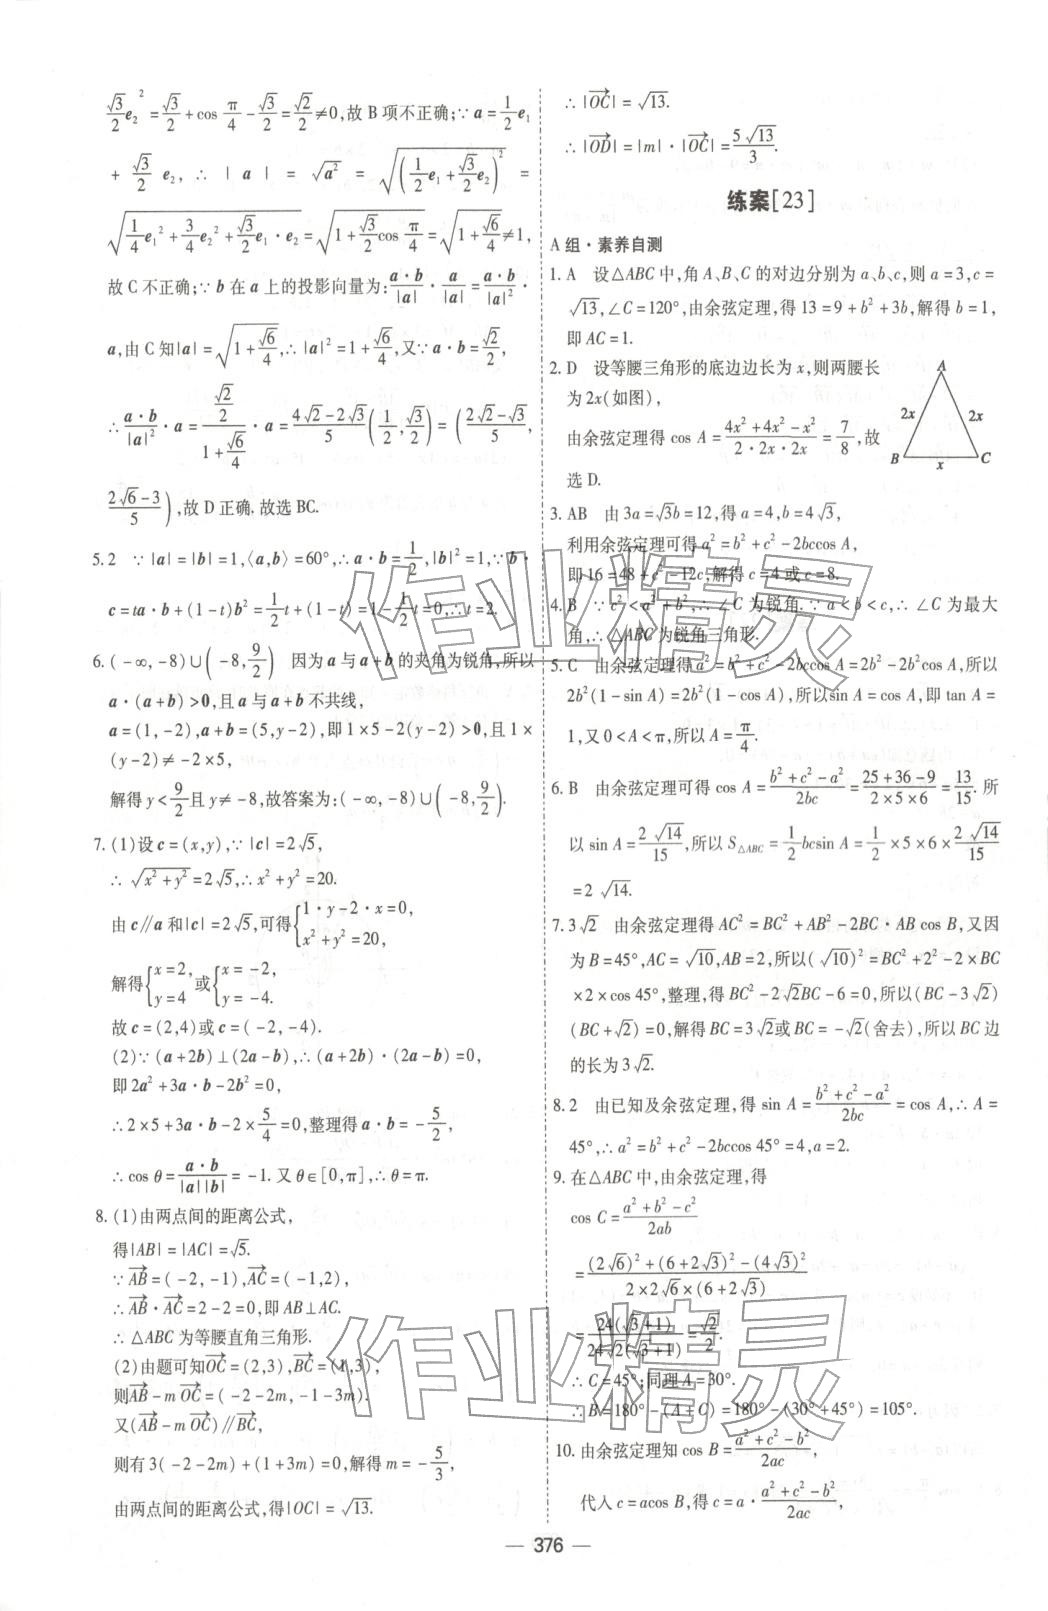 √3/2 e₂² = √3/2 + cos π/4 − √3/2 = √2/2 ≠ 0,故 B 项不正确;∵ a = 1/2 e₁
+ √3/2 e₂,∴ |a| = √(a²) = √((1/2 e₁ + √3/2 e₂)²) =
√(1/4 e₁² + 3/4 e₂² + √3/2 e₁·e₂) = √(1 + √3/2 cos π/4) = √(1 + √6/4) ≠ 1,
故 C 不正确;∵ b 在 a 上的投影向量为: a·b/|a| · a/|a| = a·b/|a|² ·
a,由 C 知|a| = √(1 + √6/4),∴ |a|² = 1 + √6/4,又∵ a·b = √2/2,
∴ a·b/|a|² · a = (√2/2)/(1 + √6/4) · a = (4√2−2√3)/5 (1/2, √3/2) = ((2√2−√3)/5,
(2√6−3)/5),故 D 正确.故选 BC.
5. 2 ∵ |a| = |b| = 1,⟨a,b⟩ = 60°,∴ a·b = 1/2,|b|² = 1,∵ b·
c = ta·b + (1−t)b² = 1/2 t + (1−t) = 1 − 1/2 t = 0,∴ t = 2.
6. (−∞,−8)∪(−8,9/2) 因为 a 与 a+b 的夹角为锐角,所以
a·(a+b) > 0,且 a 与 a+b 不共线,
a = (1,−2),a+b = (5,y−2),即 1×5−2(y−2) > 0,且 1×
(y−2) ≠ −2×5,
解得 y < 9/2 且 y ≠ −8,故答案为:(−∞,−8)∪(−8,9/2).
7. (1)设 c = (x,y),∵ |c| = 2√5,
∴ √(x²+y²) = 2√5,∴ x²+y² = 20.
由 c∥a 和|c| = 2√5,可得{1·y−2·x=0, x²+y²=20,
解得{x=2, y=4 或{x=−2, y=−4.
故 c = (2,4)或 c = (−2,−4).
(2)∵ (a+2b)⊥(2a−b),∴ (a+2b)·(2a−b) = 0,
即 2a²+3a·b−2b² = 0,
∴ 2×5+3a·b−2×5/4 = 0,整理得 a·b = −5/2,
∴ cos θ = a·b/|a||b| = −1. 又 θ∈[0,π],∴ θ = π.
8. (1)由两点间的距离公式,
得|AB| = |AC| = √5.
∵ AB→ = (−2,−1),AC→ = (−1,2),
∴ AB→·AC→ = 2−2 = 0,即 AB⊥AC.
∴ △ABC 为等腰直角三角形.
(2)由题可知OC→ = (2,3),BC→ = (1,3),
则AB→−m OC→ = (−2−2m,−1−3m).
又(AB→−m OC→)∥BC→,
则有 3(−2−2m)+(1+3m) = 0,解得 m = −5/3,
由两点间的距离公式,得|OC| = √13.
∴ |OC→| = √13.
∴ |OD→| = |m|·|OC→| = 5√13/3.
练案[23]
A 组·素养自测
1. A 设△ABC 中,角 A、B、C 的对边分别为 a、b、c,则 a = 3,c =
√13,∠C = 120°,由余弦定理,得 13 = 9+b²+3b,解得 b = 1,
即 AC = 1.
2. D 设等腰三角形的底边边长为 x,则两腰长
为 2x(如图),
由余弦定理得 cos A = (4x²+4x²−x²)/(2·2x·2x) = 7/8,故
选 D.
A
2x
2x
B
x
C
3. AB 由 3a = √3b = 12,得 a = 4,b = 4√3,
利用余弦定理可得 a² = b²+c²−2bccos A,
即 16 = 48+c²−12c,解得 c = 4 或 c = 8.
4. B ∵ c² < a²+b²,∴ ∠C 为锐角. ∵ a < b < c,∴ ∠C 为最大
角,∴ △ABC 为锐角三角形.
5. C 由余弦定理得 a² = b²+c²−2bccos A = 2b²−2b²cos A,所以
2b²(1−sin A) = 2b²(1−cos A),所以sin A = cos A,即 tan A =
1,又 0 < A < π,所以 A = π/4.
6. B 由余弦定理可得 cos A = (b²+c²−a²)/2bc = (25+36−9)/(2×5×6) = 13/15. 所
以 sin A = 2√14/15,所以 S△ABC = 1/2 bcsin A = 1/2×5×6×2√14/15
= 2√14.
7. 3√2 由余弦定理得 AC² = BC²+AB²−2BC·AB cos B,又因
为 B = 45°,AC = √10,AB = 2,所以(√10)² = BC²+2²−2×BC
×2×cos 45°,整理,得 BC²−2√2BC−6 = 0,所以(BC−3√2)
(BC+√2) = 0,解得 BC = 3√2或 BC = −√2(舍去),所以 BC 边
的长为 3√2.
8. 2 由已知及余弦定理,得 sin A = (b²+c²−a²)/2bc = cos A,∴ A =
45°,∴ a² = b²+c²−2bccos 45° = 4,a = 2.
9. 在△ABC 中,由余弦定理,得
cos C = (a²+b²−c²)/2ab
= ((2√6)²+(6+2√3)²−(4√3)²)/(2×2√6×(6+2√3))
= 24(√3+1)/24√2(√3+1) = √2/2.
∴ C = 45°;同理 A = 30°.
∴ B = 180°−(A+C) = 180°−(30°+45°) = 105°.
10. 由余弦定理知 cos B = (a²+c²−b²)/2ac,
代入 c = acos B,得 c = a·(a²+c²−b²)/2ac,
— 376 —
作业精灵
作业精灵